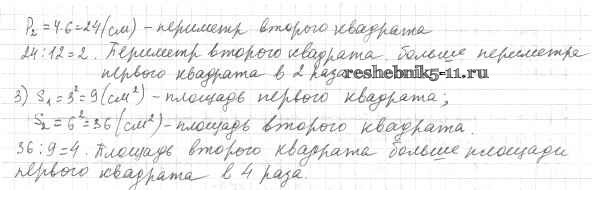 P₂ = 4·6 = 24 (см) – периметр второго квадрата
24:12=2. Периметр второго квадрата больше периметра
первого квадрата в 2 раза.
reshebnik5-11.ru
3) S₁ = 3² = 9 (см²) – площадь первого квадрата;
S₂ = 6² = 36 (см²) – площадь второго квадрата.
36:9=4. Площадь второго квадрата больше площади
первого квадрата в 4 раза.